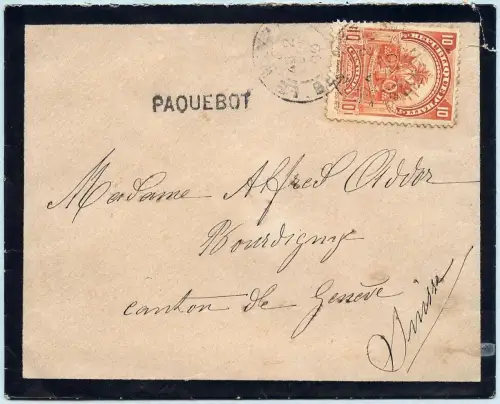 10 REPUBLIQUE D'HAITI 10
10 10
PAQUEBOT
Madame Alfred Addor
Bourdigny
canton de Genève
Suisse